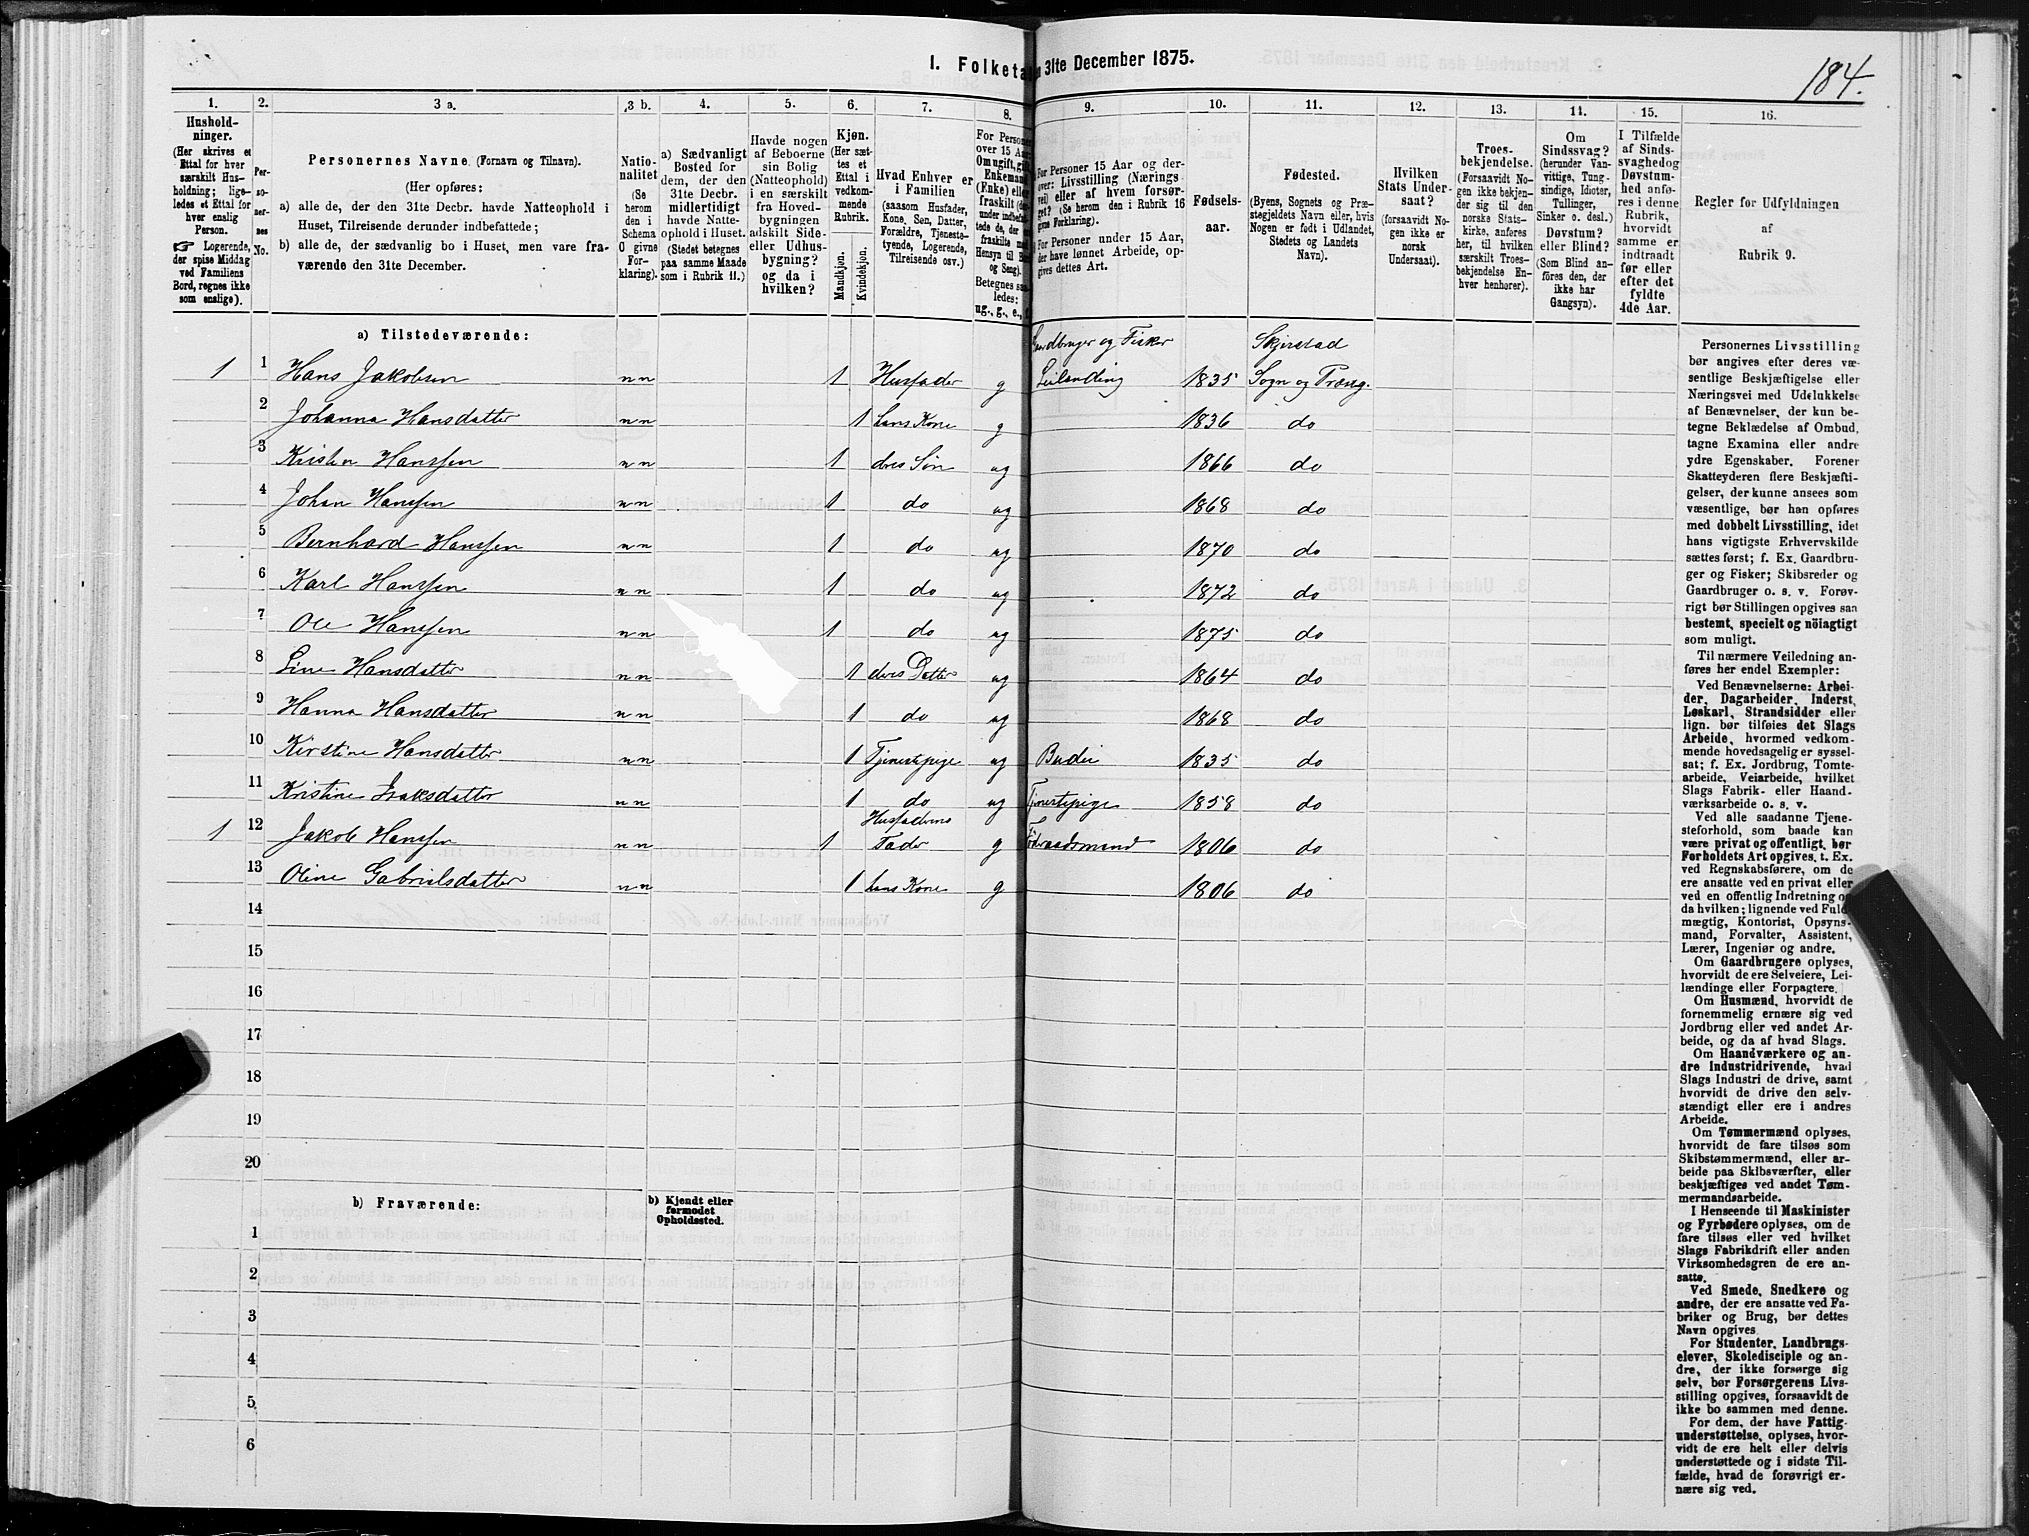 184.
I. Folketa 31te December 1875.
1. 2. 3 a. 3 b. 4. 5. 6. 7. 8. 9. 10. 11. 12. 13. 14. 15. 16.
Hushold-
ninger.
(Her skrives et
Ettal for hver
særskilt Hus-
holdning; lige-
ledes et Ettal for
hver enslig
Person.
☞ Logerende,
der spise Middag
ved Familiens
Bord, regnes ikke
som enslige).
Per-
so-
ner-
nes
No.
Personernes Navne. (Fornavn og Tilnavn).
(Her opføres:
a) alle de, der den 31te Decbr. havde Natteophold i
Huset, Tilreisende derunder indbefattede;
b) alle de, der sædvanlig bo i Huset, men vare fra-
værende den 31te December.
Natio-
nalitet
(Se
herom
den i
Schema
O givne
For-
klaring).
a) Sædvanligt
Bosted for
dem, der den
31te Decbr.
midlertidigt
havde Natte-
ophold i Huset.
(Stedet betegnes
paa samme Maade
som i Rubrik 11.)
Havde nogen
af Beboerne
sin Bolig
(Natteophold)
i en særskilt
fra Hoved-
bygningen
adskilt Side-
eller Udhus-
bygning?
og da i
hvilken?
Kjøn.
(Her sæt-
tes et
Ettal i
vedkom-
mende
Rubrik.
Mandkjøn.
Kvindekjøn.
Hvad Enhver er
i Familien
(saasom Husfader,
Kone, Søn, Datter,
Forældre, Tjeneste-
tyende, Logerende,
Tilreisende osv.)
For Persone
over 15 Aar
Om ugift, gift
Enkemand
(Enke) elle
fraskilt
Betegnes saa
ledes:
ug., g., e., f.
For Personer 15 Aar og der-
over: Livsstilling (Nærings-
vei) eller af hvem forsør-
get? (Se herom den i Rubrik 16
givne Forklaring).
For Personer under 15 Aar,
der have lønnet Arbeide, op-
gives dettes Art.
Fødsels-
aar.
Fødested.
(Byens, Sognets og Præ-
stegjeldets Navn eller, hvis
Nogen er født i Udlandet,
Stedets og Landets
Navn).
Hvilken
Stats Under-
saat?
(forsaavidt No-
gen ikke er
norsk
Undersaat).
Troes-
bekjendelse.
(Forsaavidt No-
gen ikke bekjen-
der sig til den
norske Stats-
kirke, anføres
her, til hvilken
særskilt Troes-
bekjendelse En-
hver henhører).
Om
Sindssvag?
(herunder Van-
vittige, Tung-
sindige, Idioter,
Tullinger,
Sinker o. desl.)
Døvstum?
eller Blind?
(Som Blind an-
føres den, der
ikke har
Gangsyn).
I Tilfælde
af Sinds-
svaghed og
Døvstum-
hed anfø-
res i denne
Rubrik,
hvorvidt
samme er
indtraadt
før eller
efter det
fyldte
4de Aar.
Regler før Udfyldningen
af
Rubrik 9.
a) Tilstedeværende:
Gaardbruger og Fisker Skjerstad
1 1 Hans Jakobsen n n 1 Husfader g Leilænding 1835 Sogn og Præstg.
2 Johanna Hansdatter n n 1 hans Kone g 1836 do
3 Kristen Hanssen n n 1 dres Søn ug 1866 do
4 Johan Hanssen n n 1 do ug 1868 do
5 Bernhard Hanssen n n 1 do ug 1870 do
6 Karl Hanssen n n 1 do ug 1872 do
7 Ole Hanssen n n 1 do ug 1875 do
8 Line Hansdatter n n 1 deres Datter ug 1864 do
9 Hanna Hansdatter n n 1 do ug 1868 do
10 Kirstine Hansdatter n n 1 Tjenestepige ug Budeie 1835 do
11 Kristine Isaksdatter n n 1 do ug Tjenestepige 1858 do
Husfaderens
1 12 Jakob Hanssen n n 1 Fader g Føderaadsmand 1806 do
13 Oline Gabrielsdatter n n 1 hans Kone g 1806 do
14
15
16
17
18
19
20
b) Fraværende:
b) Kjendt eller
formodet
Opholdssted.
1
2
3
4
5
6
Personernes Livsstilling
bør angives efter deres væ-
sentlige Beskjæftigelse eller
Næringsvei med Udelukkelse
af Benævnelser, der kun be-
tegne Beklædelse af Ombud,
tagne Examina eller andre
ydre Egenskaber. Forener
Skatteyderen flere Beskjæfti-
gelser, der kunne ansees som
væsentlige, bør han opføres
med dobbelt Livsstilling, idet
hans vigtigste Erhvervskilde
sættes først; f. Ex. Gaardbru-
ger og Fisker; Skibsreder og
Gaardbruger o. s. v. Forøv-
rigt bør Stillingen opgives saa
bestemt, specielt og nöiagtigt
som muligt.
Til nærmere Veiledning an-
føres her endel Exempler:
Ved Benævnelserne: Arbei-
der, Dagarbeider, Inderst,
Løskarl, Strandsidder eller
lign. bør tilføies det Slags
Arbeide, hvormed vedkom-
mende hovedsagelig er syssel-
sat; f. Ex. Jordbrug, Tomte-
arbeide, Veiarbeide, hvilket
Slags Fabrik- eller Haand-
værksarbeide o. s. v.
Ved alle saadanne Tjene-
steforhold, som baade kan
være privat og offentligt, bør
Forholdets Art opgives, t. Ex.
ved Regnskabsførere, om de
ere ansatte ved en privat eller
ved en offentlig Indretning o
da hvilken; lignende ved Fuld-
mægtig, Kontorist, Opsyns-
mand, Forvalter, Assistent,
Lærer, Ingeniør og andre.
Om Gaardbrugere oplyses,
hvorvidt de ere Selveiere, Lei-
lændinge eller Forpagtere.
Om Husmænd, hvorvidt de
fornemmelig ernære sig ved
Jordbrug eller ved andet Ar-
beide, og da af hvad Slags.
Om Haandværkere og an-
dre Industridrivende, hvad
Slags Industri de drive, samt
hvorvidt de drive den selv-
stændigt eller ere i andres
Arbeide.
Om Tømmermænd oplyses,
hvorvidt de fare tilsøs som
Skibstømmermænd, eller ar-
beide paa Skibsværfter, eller
beskjæftiges ved andet Tøm-
mermandsarbeide.
I Henseende til Maskinister
og Fyrbødere oplyses, om de
fare tilsøs eller ved hvilket
Slags Fabrikdrift eller anden
Virksomhedsgren de ere an-
satte.
Ved Smede, Snedkere og
andre, der ere ansatte ved Fa-
briker og Brug, bør dettes
Navn opgives
For Studenter, Landbrugs-
elever, Skoledisciple og an-
dre, der ikke forsørge sig
selv, bør Forsørgerens Livs-
stilling opgives, forsaavidt de
ikke bo sammen med denne.
For dem, der have Fattig-
understøttelse, oplyses, hvor-
vidt de ere helt eller delvis
understøttede og i sidste Til-
fælde, hvad de forøvrigt er-
nære sig ved.